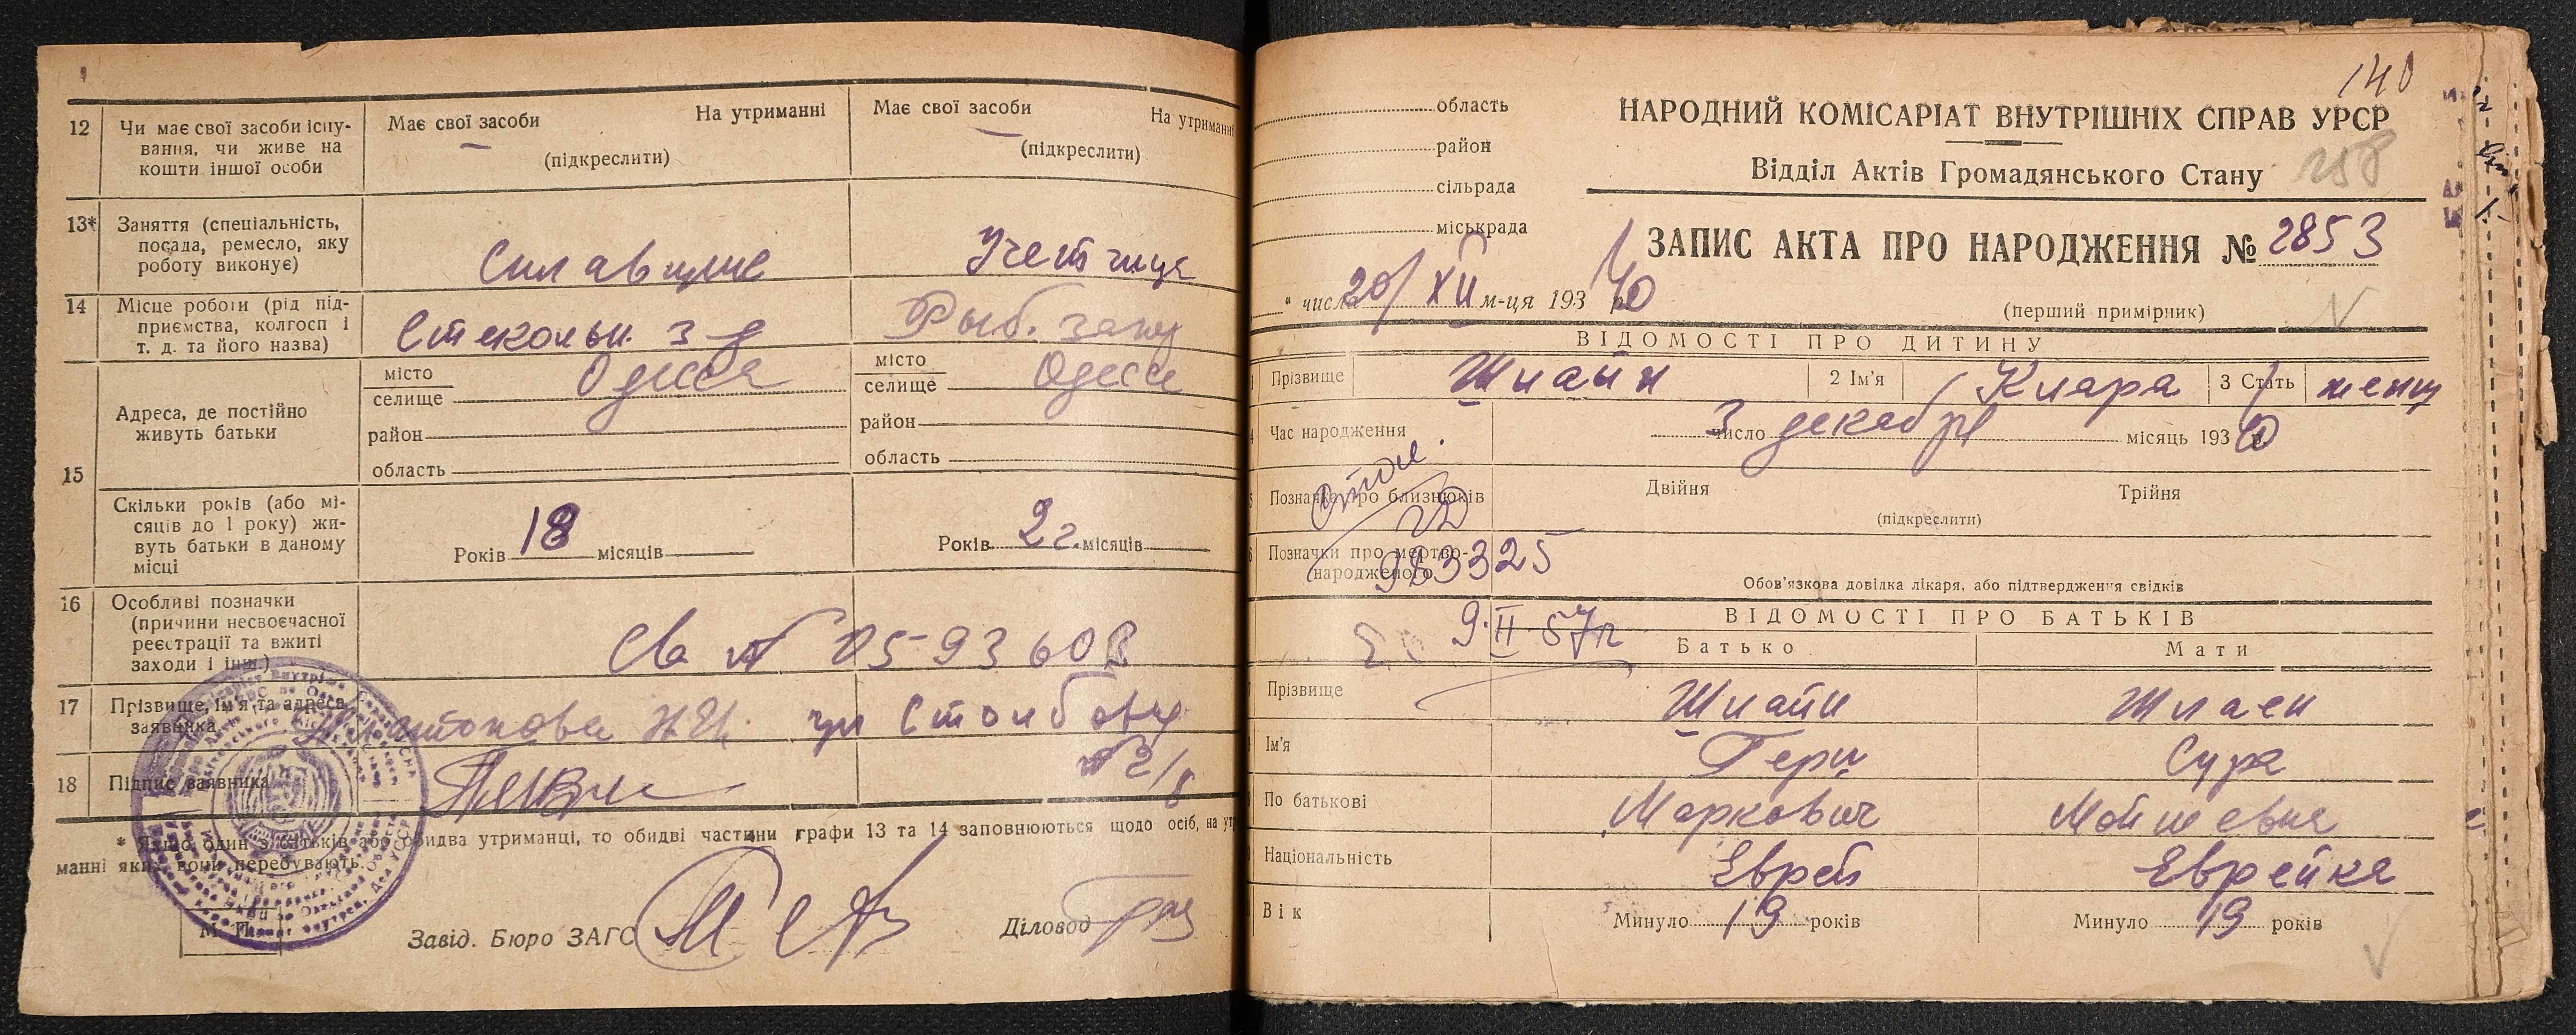 12
Чи має свої засоби існу-
вання, чи живе на
кошти іншої особи
Має свої засоби
На утриманні
(підкреслити)
Має свої засоби
На утриманні
(підкреслити)
13*
Заняття (спеціальність,
посада, ремесло, яку
роботу виконує)
Учетчица
14
Місце роботи (рід під-
приємства, колгосп і
т. д. та його назва)
Стекольн. з-д
Рыб.
15
Адреса, де постійно
живуть батьки
місто
селище
Одесса
район
область
місто
селище
Одесса
район
область
Скільки років (або мі-
сяців до 1 року) жи-
вуть батьки в даному
місці
Років 18 місяців
Років 2 г. місяців
16
Особливі позначки
(причини несвоєчасної
реєстрації та вжиті
заходи і інш.)
Св №
17
Прізвище, ім'я та адреса
заявника
ул Столбовая
№ 2/8
18
Підпис заявника
* Якщо один з батьків або обидва утриманці, то обидві частини графи 13 та 14 заповнюються щодо осіб, на утри-
манні яких вони перебувають.
М. П.
Завід. Бюро ЗАГС
Діловод
140
область
район
сільрада
міськрада
НАРОДНИЙ КОМІСАРІАТ ВНУТРІШНІХ СПРАВ УРСР
Відділ Актів Громадянського Стану
258
ЗАПИС АКТА ПРО НАРОДЖЕННЯ № 2853
" числа 20/ XII м-ця 193 40 р.
(перший примірник)
ВІДОМОСТІ ПРО ДИТИНУ
1 Прізвище Шпайн 2 Ім'я Клара 3 Стать женщ
4 Час народження 3 число декабря місяць 193 40 р.
5 Позначка про близнюків
Двійня
Трійня
(підкреслити)
6 Позначки про мертво-
народженого
983325
9.II 57 г
Обов'язкова довідка лікаря, або підтвердження свідків
ВІДОМОСТІ ПРО БАТЬКІВ
Батько
Мати
Прізвище Шпайн Шпаен
Ім'я Герш Сура
По батькові Маркович Мойшевна
Національність Еврей Еврейка
Вік
Минуло 19 років
Минуло 19 років